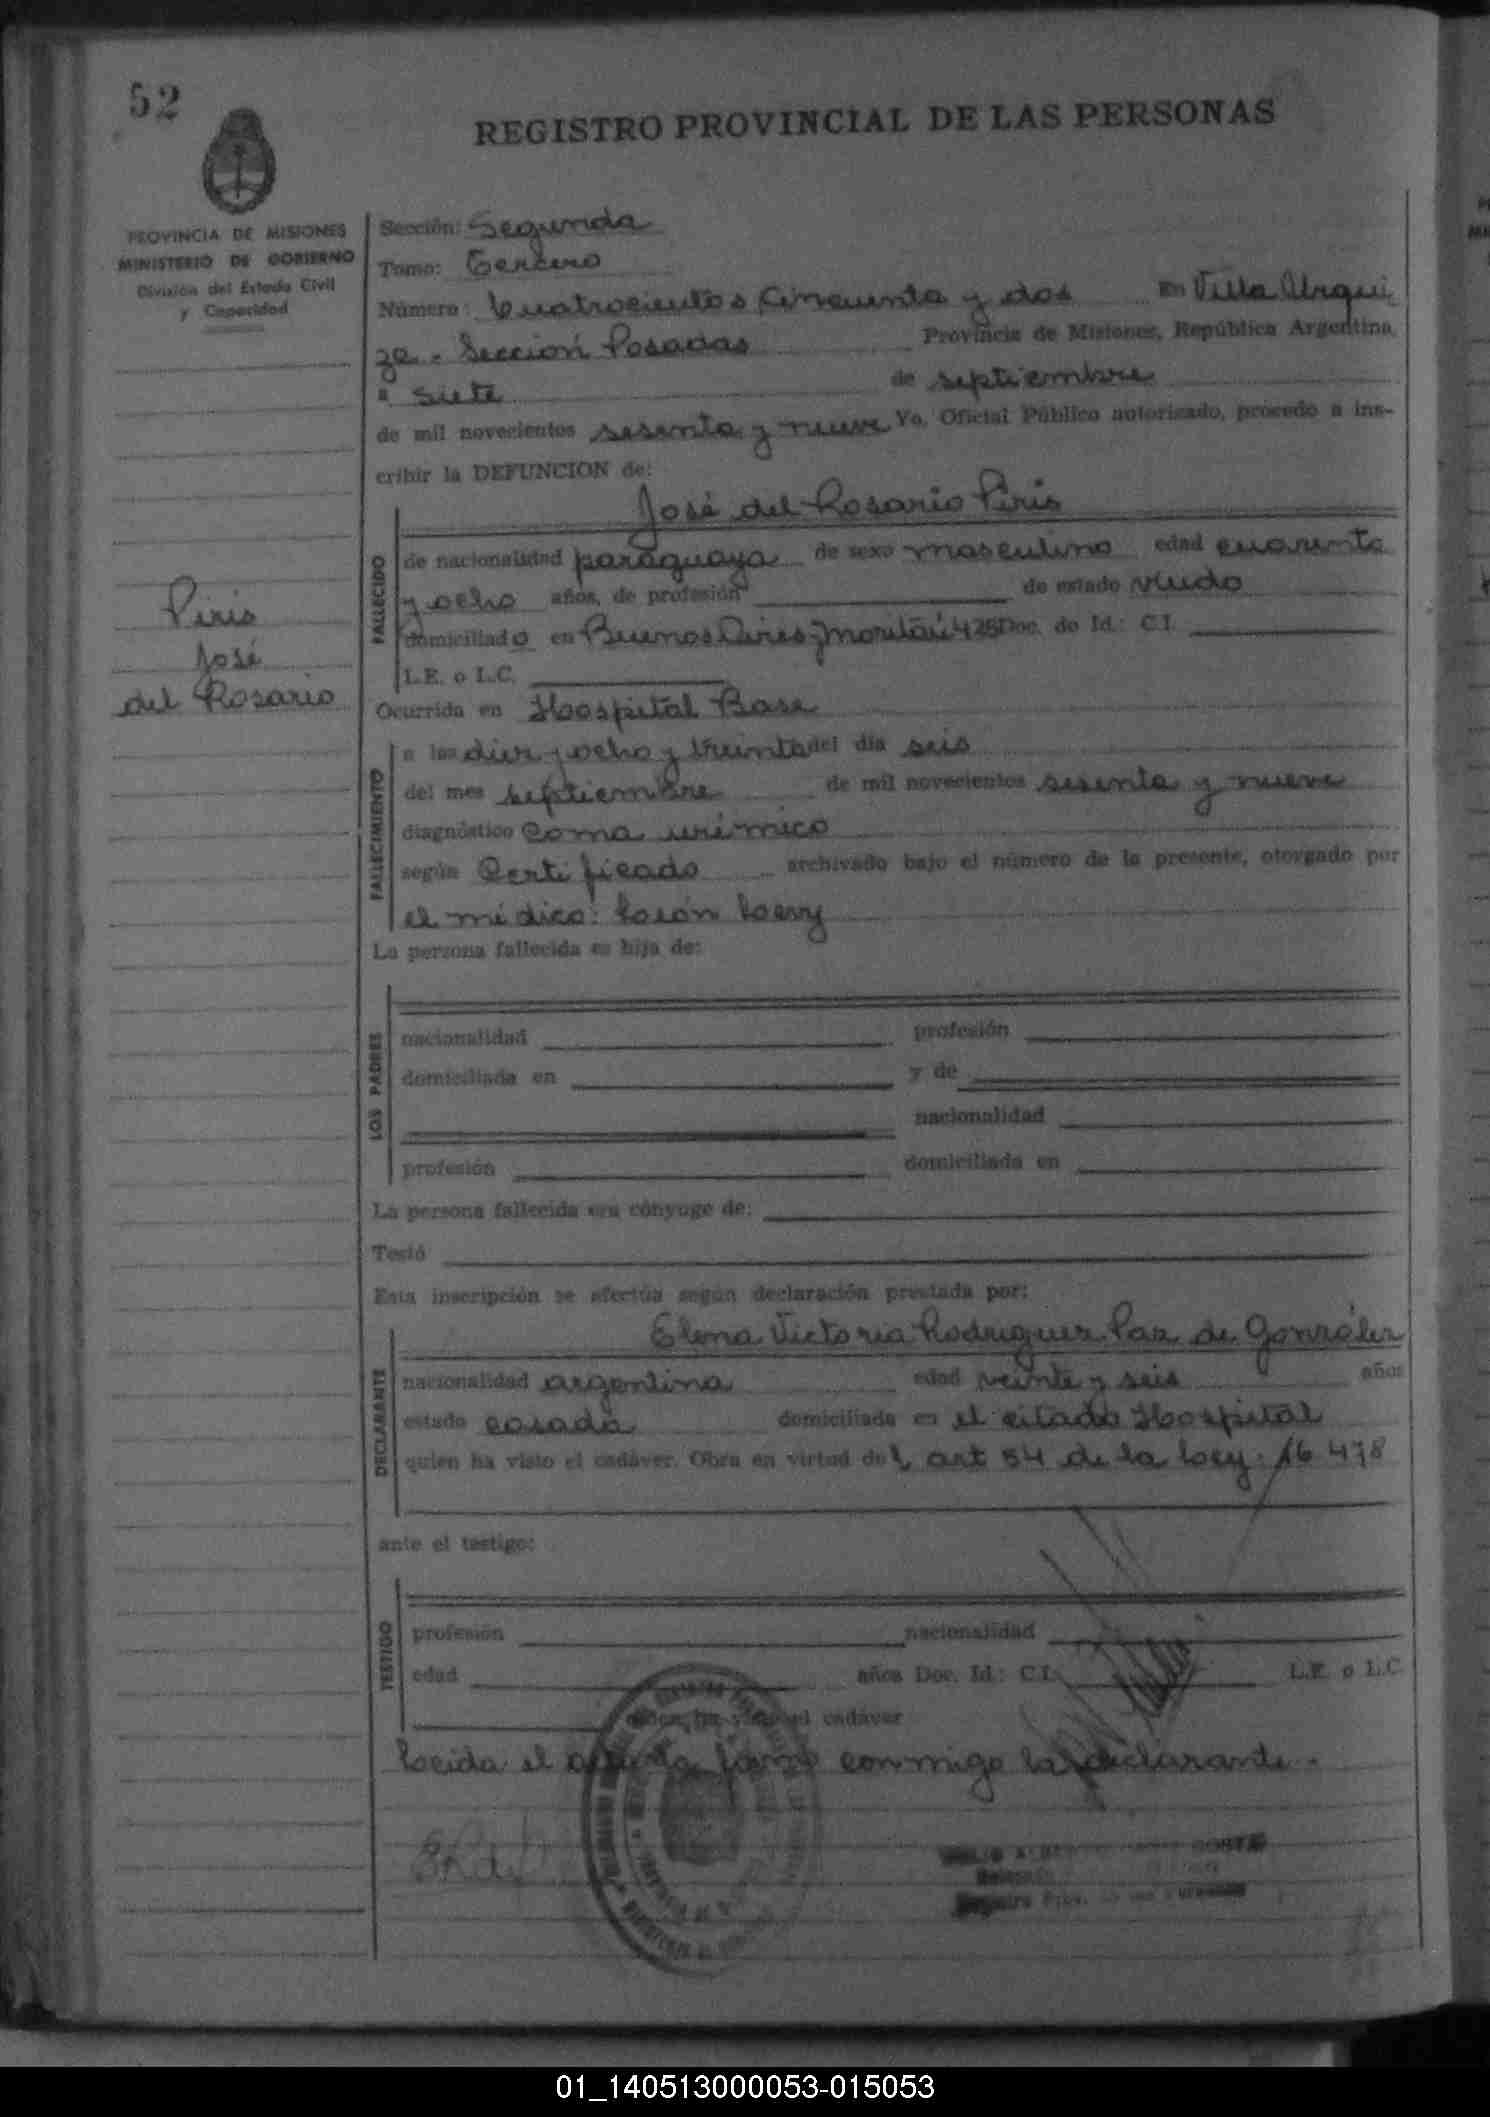 52
REGISTRO PROVINCIAL DE LAS PERSONAS
PROVINCIA DE MISIONES
MINISTERIO DE GOBIERNO
División del Estado Civil
y Capacidad
Piris
José
del Rosario
Sección: Segunda
Tomo: Tercero
Número: Cuatrocientos Cincuenta y dos en Villa Urqui
za - Sección Posadas Provincia de Misiones, República Argentina,
a siete de septiembre
de mil novecientos sesenta y nueve Yo, Oficial Público autorizado, procedo a ins-
cribir la DEFUNCION de:
José del Rosario Piris
FALLECIDO
de nacionalidad paraguaya de sexo masculino edad cuarenta
y ocho años, de profesión de estado viudo
domiciliado en Buenos Aires 425 Doc. de Id.: C.I.
L.E. o L.C.
Ocurrida en Hospital Base
FALLECIMIENTO
a las diez y ocho y treinta del día seis
del mes septiembre de mil novecientos sesenta y nueve
diagnóstico Coma urémico
según Certificado archivado bajo el número de la presente, otorgado por
el médico: León Levy
La persona fallecida es hija de:
LOS PADRES
nacionalidad profesión
domiciliada en y de
nacionalidad
profesión domiciliada en
La persona fallecida era cónyuge de:
Testó
Esta inscripción se efectúa según declaración prestada por:
DECLARANTE
Elena Victoria Rodriguez Paz de González
nacionalidad argentina edad veinte y seis años
estado casada domiciliada en el citado Hospital
quien ha visto el cadáver. Obra en virtud del art 54 de la Ley: 16 478
ante el testigo:
TESTIGO
profesión nacionalidad
edad años Doc. Id.: C.I. L.E. o L.C.
quien ha visto el cadáver
Leida el acta firma conmigo la declarante.
01_140513000053-015053